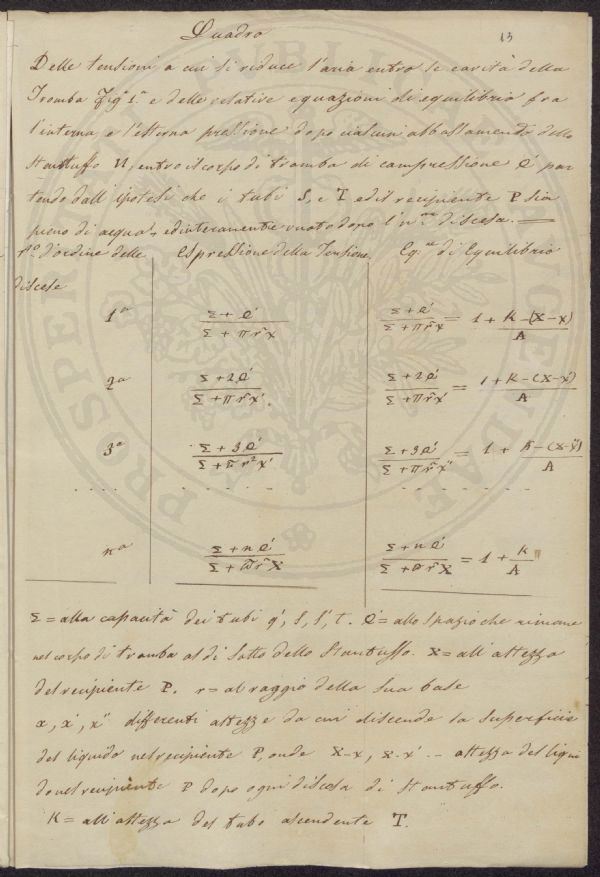 Quadro
13
Delle tensioni a cui si riduce l'aria entro le cavità della
Tromba Fig.ª 1.ª e delle relative equazioni di equilibrio fra
l'interna, e l'esterna pressione dopo ciascun abbassamento dello
Stantuffo N, entro il corpo di tromba di compressione e' par
tendo dall'ipotesi che i tubi S, e T ed il recipiente P sia
pieno di acqua, ed interamente vuoto dopo l'n.ma discesa. —
N.º d'ordine delle | Espressione della Tensione | Eq.ni di Equilibrio
discese
1ª | (Σ + e')/(Σ + πr²x) | (Σ + e')/(Σ + πr²x) = 1 + (K - (X - x))/A
2ª | (Σ + 2e')/(Σ + πr²x') | (Σ + 2e')/(Σ + πr²x') = 1 + (K - (X - x'))/A
3ª | (Σ + 3e')/(Σ + πr²x') | (Σ + 3e')/(Σ + πr²x'') = 1 + (K - (X - x''))/A
. . . . . | . . . . . . . . | . . . . . . . . . .
nª | (Σ + ne')/(Σ + πr²X) | (Σ + ne')/(Σ + πr²X) = 1 + K/A "
Σ = alla capacità dei tubi q', S, S', t. e' = allo spazio che rimane
nel corpo di tromba al di sotto dello Stantuffo. X = all'altezza
del recipiente P. r = al raggio della sua base
x, x', x'' differenti altezze da cui discende la superficie
del liquido nel recipiente P, onde X-x, X-x' .. altezza del liqui
do nel recipiente P dopo ogni discesa di Stantuffo.
K = all'altezza del tubo ascendente T.
PROSPERUM
PUBLICAE
LUCENDAE